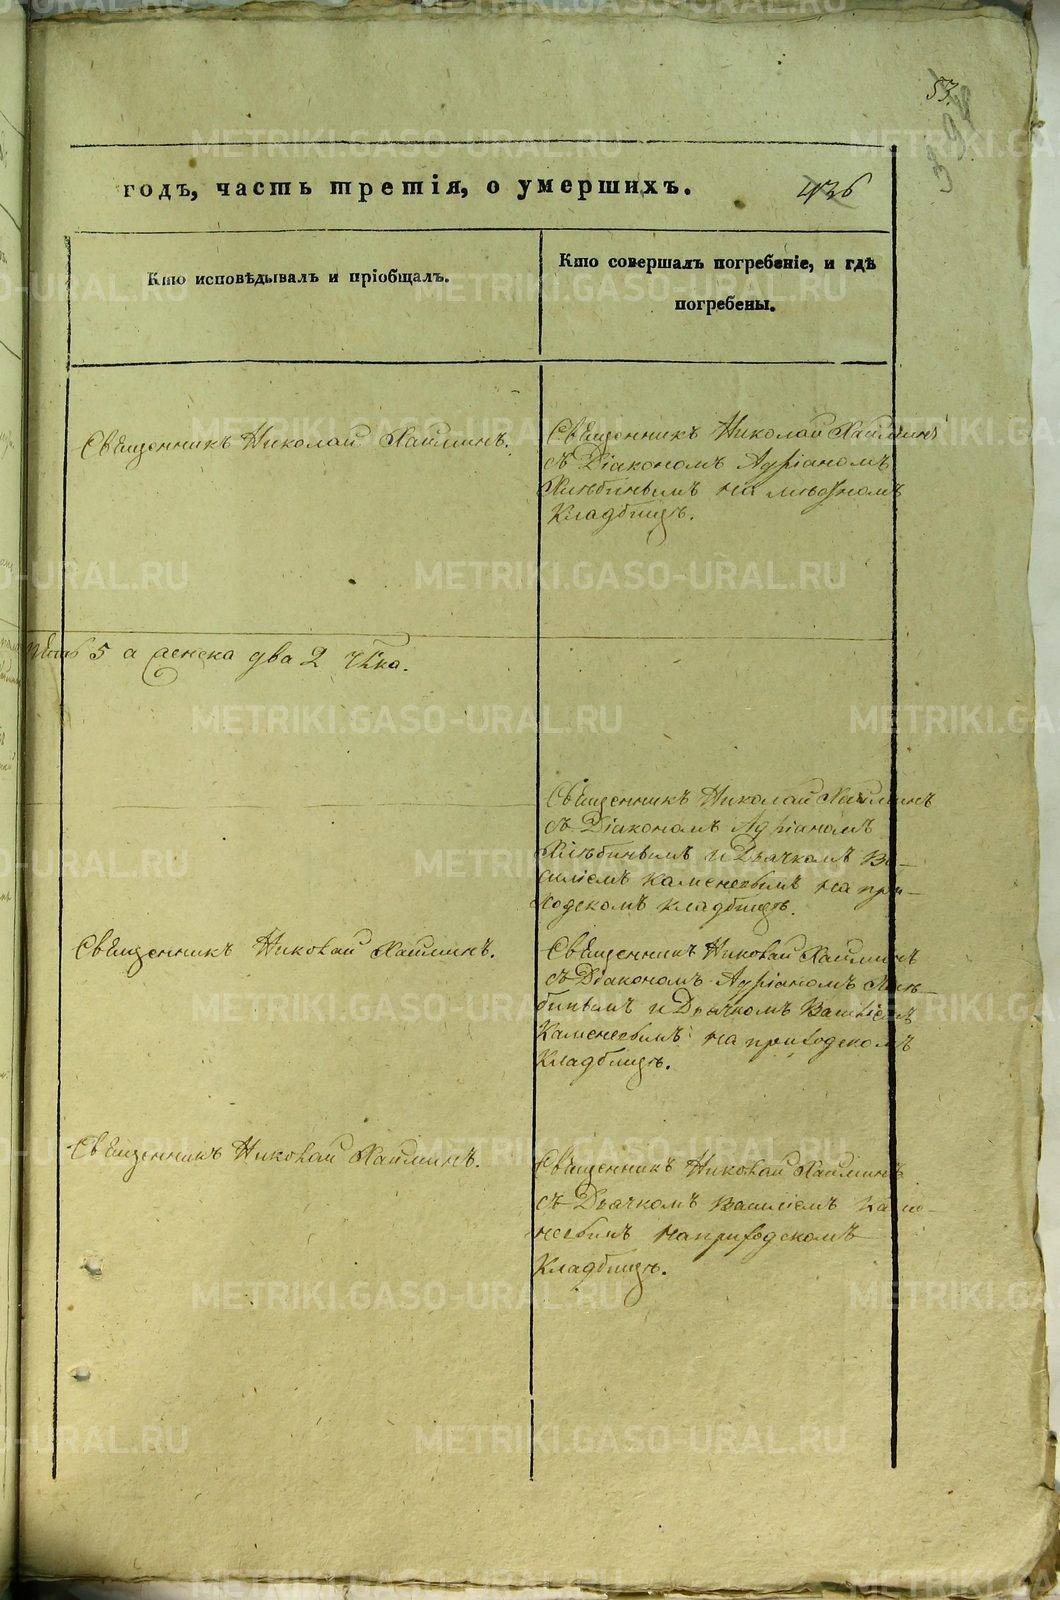 53.
годъ, часть третія, о умершихъ.
436
Кто исповѣдывалъ и пріобщалъ.
Кто совершалъ погребеніе, и гдѣ
погребены.
Священникъ Николай Хайминъ.
Священникъ Николай Хайминъ
съ Діакономъ Адріаномъ
на
Кладбищѣ.
5 а женска два 2 Чѣка.
Священникъ Николай Хайминъ
съ Діакономъ Адріаномъ
и Дьячкомъ Ва-
силіемъ на при-
ходскомъ кладбищѣ.
Священникъ Николай Хайминъ.
Священникъ Николай Хайминъ
съ Діакономъ Адріаномъ
и Дьячкомъ Василіемъ
на приходскомъ
Кладбищѣ.
Священникъ Николай Хайминъ.
Священникъ Николай Хайминъ
съ Дьячкомъ Василіемъ
на приходскомъ
Кладбищѣ.
METRIKI.GASO-URAL.RU